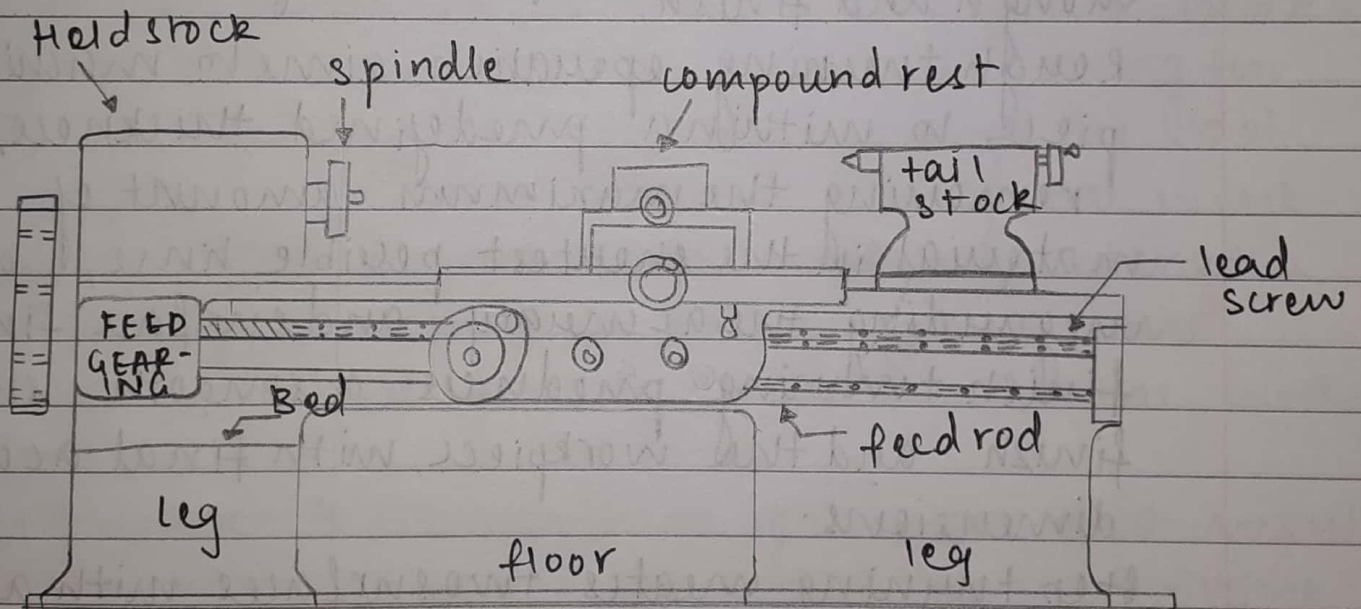 Heldstock
spindle
compound rest
tail
stock
lead
screw
FEED
GEAR-
ING
Bed
feed rod
leg
floor
leg